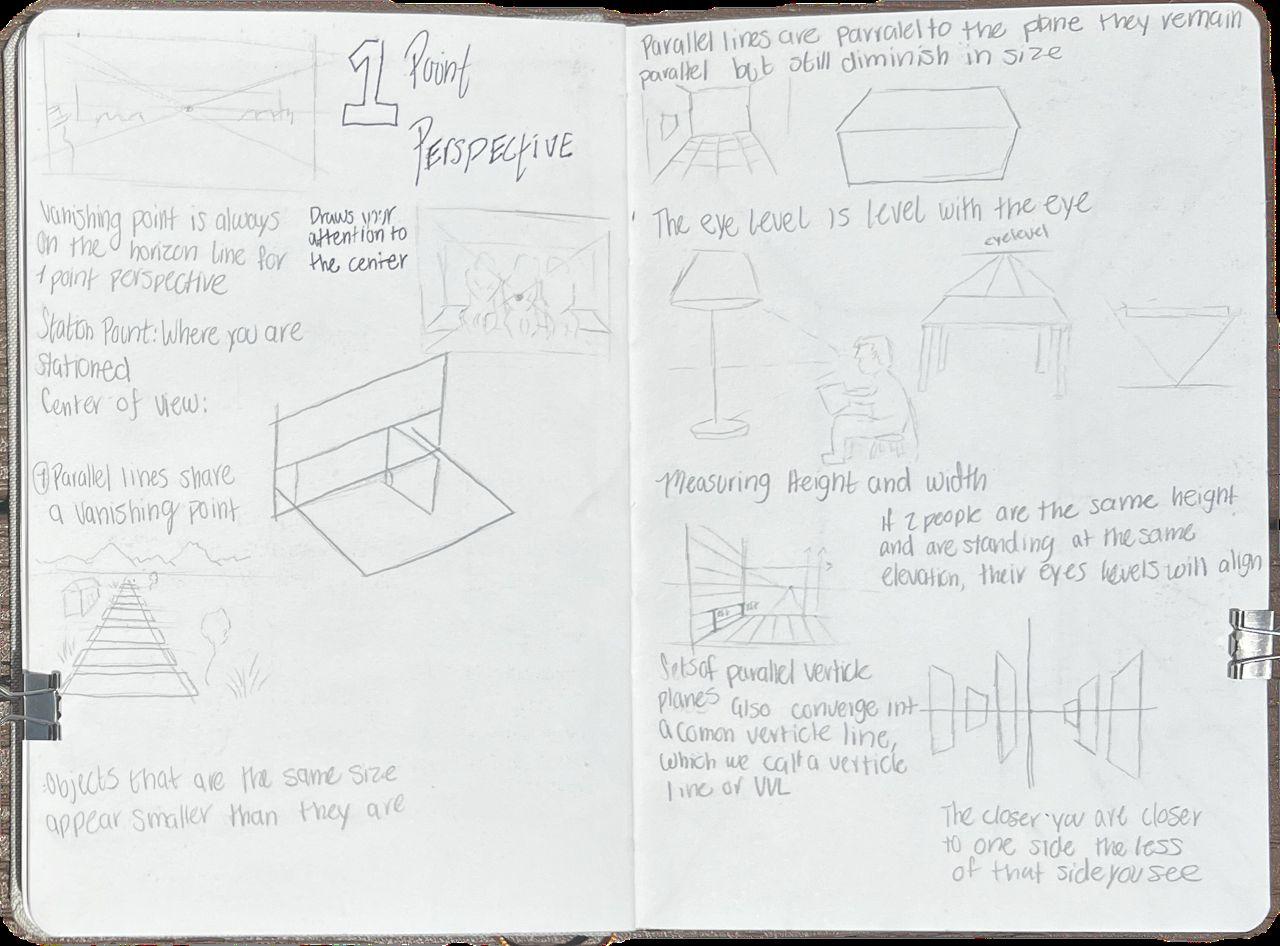 1 Point
Perspective
Vanishing point is always
on the horizon line for
1 point perspective
Draws your
attention to
the center
Station Point: Where you are
stationed
Center of view:
① Parallel lines share
a vanishing point
Objects that are the same size
appear smaller than they are
Parallel lines are parralel to the plane they remain
parallel but still diminish in size
The eye level is level with the eye
eyelevel
Measuring Height and width
If 2 people are the same height
and are standing at the same
elevation, their eyes levels will align
Sets of parallel verticle
planes also converge int
a comon verticle line,
which we call a verticle
line or VVL
The closer you are closer
to one side the less
of that side you see